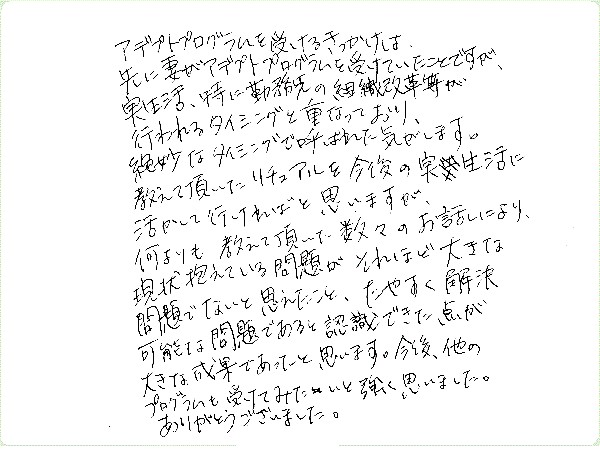 アデプトプログラムを受けるきっかけは、
先に妻がアデプトプログラムを受けていたことですが、
実生活、特に勤務先の組織改革等が
行われるタイミングと重なっており、
絶妙なタイミングで呼ばれた気がします。
教えて頂いたリチュアルを今後の実生活に
活かして行ければと思いますが、
何よりも教えて頂いた数々のお話しにより、
現状抱えている問題がそれほど大きな
問題でないと思えたこと、たやすく解決
可能な問題であると認識できた点が
大きな成果であったと思います。今後、他の
プログラムも受けてみたいと強く思いました。
ありがとうございました。